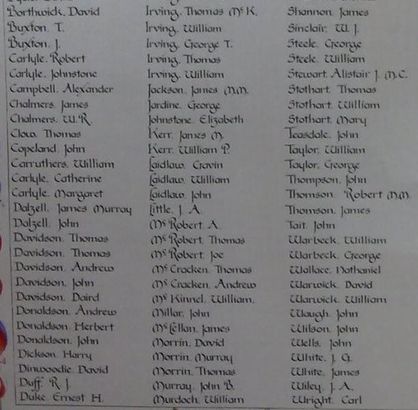 Borthwick, David
Buxton, T.
Buxton, J.
Carlyle, Robert
Carlyle, Johnstone
Campbell, Alexander
Chalmers, James
Chalmers, W.R.
Clow, Thomas
Copeland, John
Carruthers, William
Carlyle, Catherine
Carlyle, Margaret
Dalzell, James Murray
Dalzell, John
Davidson, Thomas
Davidson, Thomas
Davidson, Andrew
Davidson, John
Davidson, Baird
Donaldson, Andrew
Donaldson, Herbert
Donaldson, John
Dickson, Harry
Dinwoodie, David
Duff, R. J.
Duke, Ernest H.
Irving, Thomas McK.
Irving, William
Irving, George T.
Irving, Thomas
Irving, William
Jackson, James M.M.
Jardine, George
Johnstone, Elizabeth
Kerr, James M.
Kerr, William P.
Laidlaw, Gavin
Laidlaw, William
Laidlaw, John
Little, J. A.
McRobert, A.
McRobert, Thomas
McRobert, Joe
McCracken, Thomas
McCracken, Andrew
McKinnel, William,
Millar, John
McLellan, James
Morrin, David
Morrin, Murray
Morrin, Thomas
Murray, John B.
Murdoch, William
Shannon, James
Sinclair, W. J.
Steele, George
Steele, William
Stewart, Alistair J. M.C.
Stothart, Thomas
Stothart, William
Stothart, Mary
Teasdale, John
Taylor, William
Taylor, George
Thompson, John
Thomson, Robert M.M.
Thomson, James
Tait, John
Warbeck, William
Warbeck, George
Wallace, Nathaniel
Warwick, David
Warwick, William
Waugh, John
Wilson, John
Wells, John
White, J. G.
White, James
Wiley, J. A.
Wright, Carl